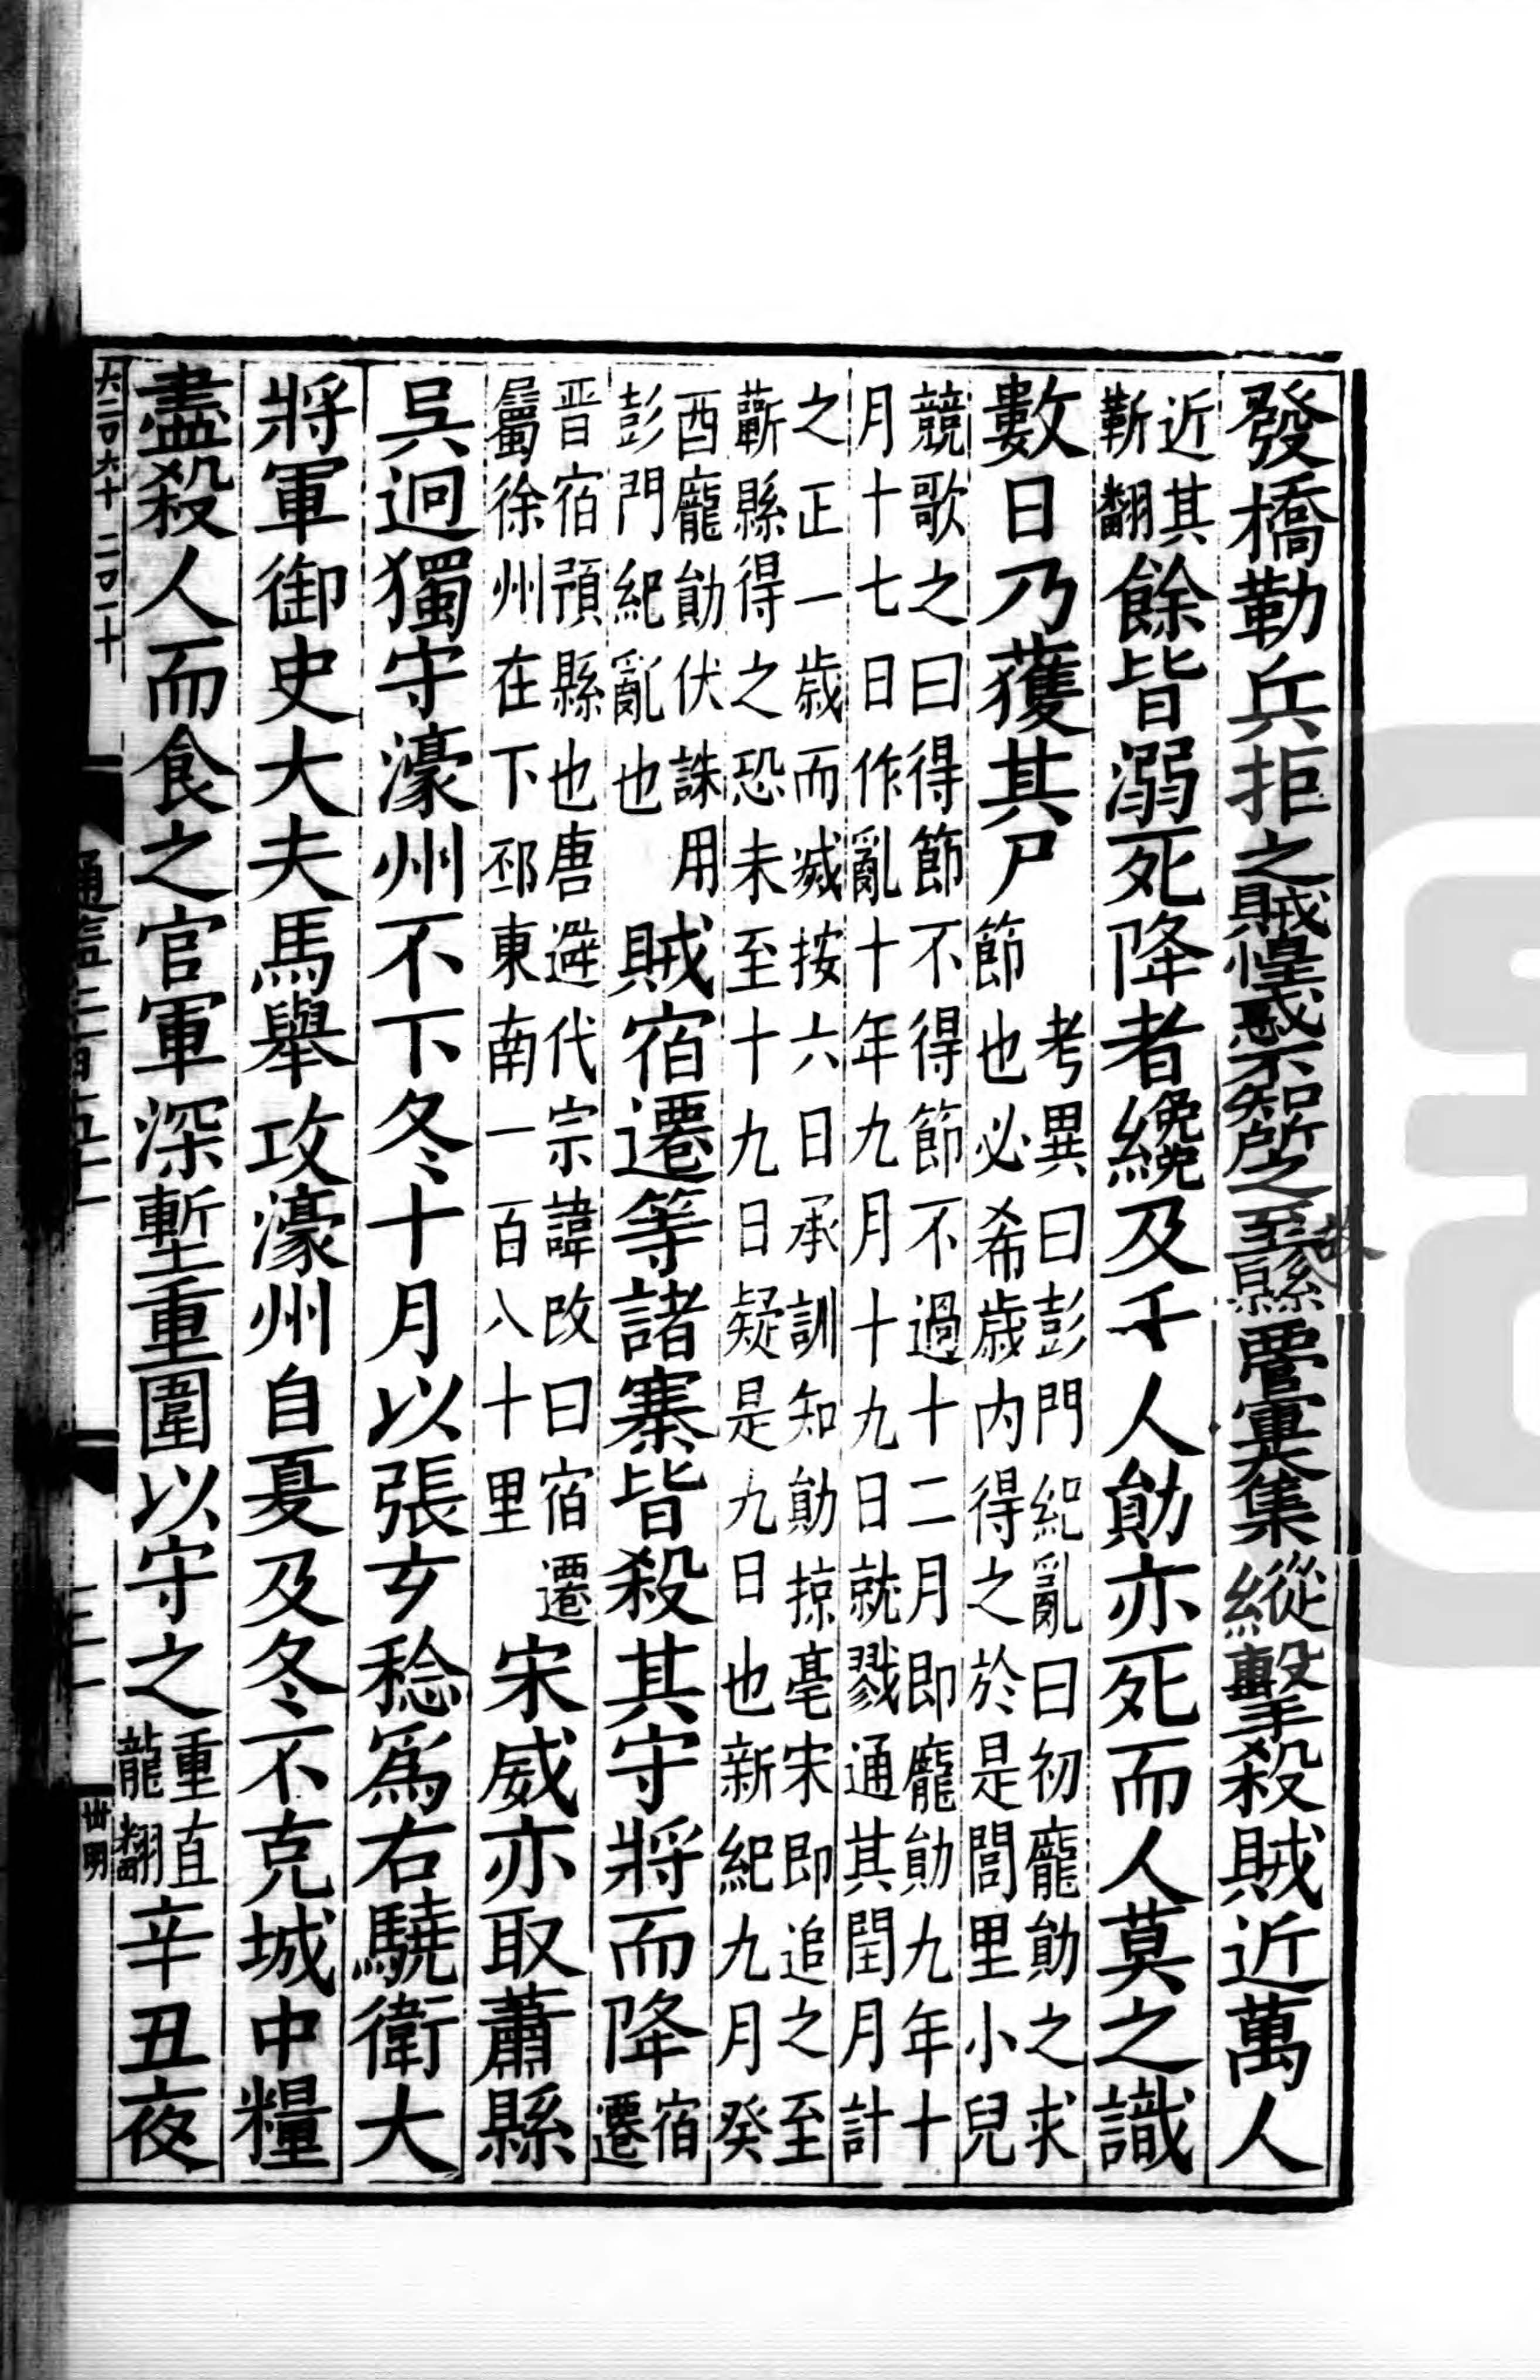 發橋勒兵拒之賊惶惑不知所之至縣西官軍集縱擊殺賊近萬人
近其
靳翻
餘皆溺死降者纔及千人勛亦死而人莫之識
數日乃獲其尸
考異曰彭門紀亂曰初龐勛之求
節也必希歳内得之於是閭里小兒
競歌之曰得節不得節不過十二月即龐勛九年十
月十七日作亂十年九月十九日就戮通其閏月計
之正一歳而滅按六日承訓知勛掠亳宋即追之至
蘄縣得之恐未至十九日疑是九日也新紀九月癸
酉龐勛伏誅用
彭門紀亂也
賊宿遷等諸寨皆殺其守將而降
宿
遷
晋宿預縣也唐避代宗諱改曰宿遷
屬徐州在下邳東南一百八十里
宋威亦取蕭縣
吳迥獨守濠州不下冬十月以張玄稔爲右驍衛大
將軍御史大夫馬舉攻濠州自夏及冬不克城中糧
盡殺人而食之官軍深塹重圍以守之
重直
龍翻
辛丑夜
通鑑二百五十一